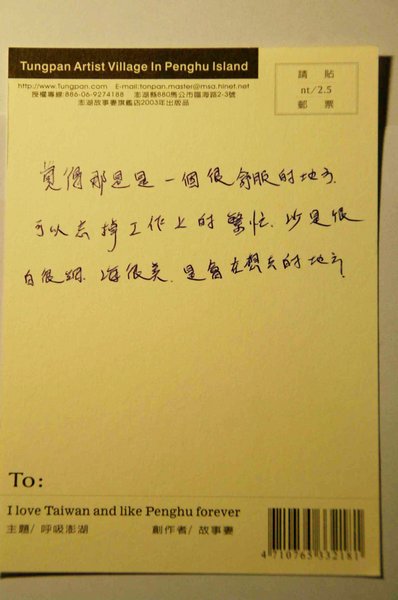 Tungpan Artist Village In Penghu Island
http://www.Tungpan.com E-mail:tonpan.master@msa.hinet.net
授權專線:886-06-9274188 澎湖縣880馬公市臨海路2-3號
澎湖故事妻旗艦店2003年出版品
請貼
nt/2.5
郵票
覺得那邊是一個很舒服的地方.
可以忘掉工作上的繁忙. 沙是很
白很細. 海很美. 是會在想去的地方.
To:
I love Taiwan and like Penghu forever
主題/ 呼吸澎湖 創作者/ 故事妻
4 710765 332181